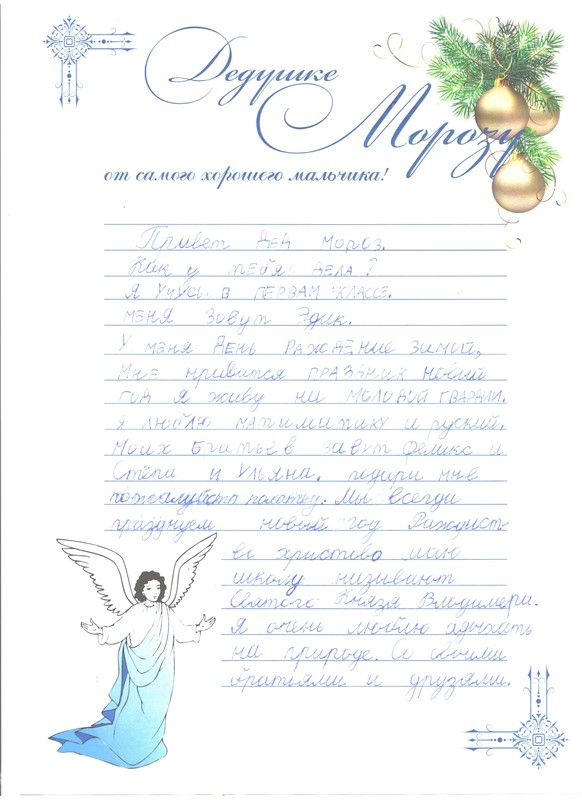 Дедушке
Морозу
от самого хорошего мальчика!
Привет дед мороз.
Как у тебя дела?
Я учусь в первам классе.
меня зовут Эдик.
У меня день раждение зимой,
Мне нравится праздник новый
год я живу ни молодой гвардии.
я люблю матиматику и руский.
Моих братьев завут Феликс и
Стёпа и Ульяна. подари мне
пожалуйста палатку. Мы всегда
празднуем новый год Рижодист-
во христово маю
школу називают
Святого Князя Влодимера.
Я очень люблю адыхать
на природе. С своими
братьями и друзями.